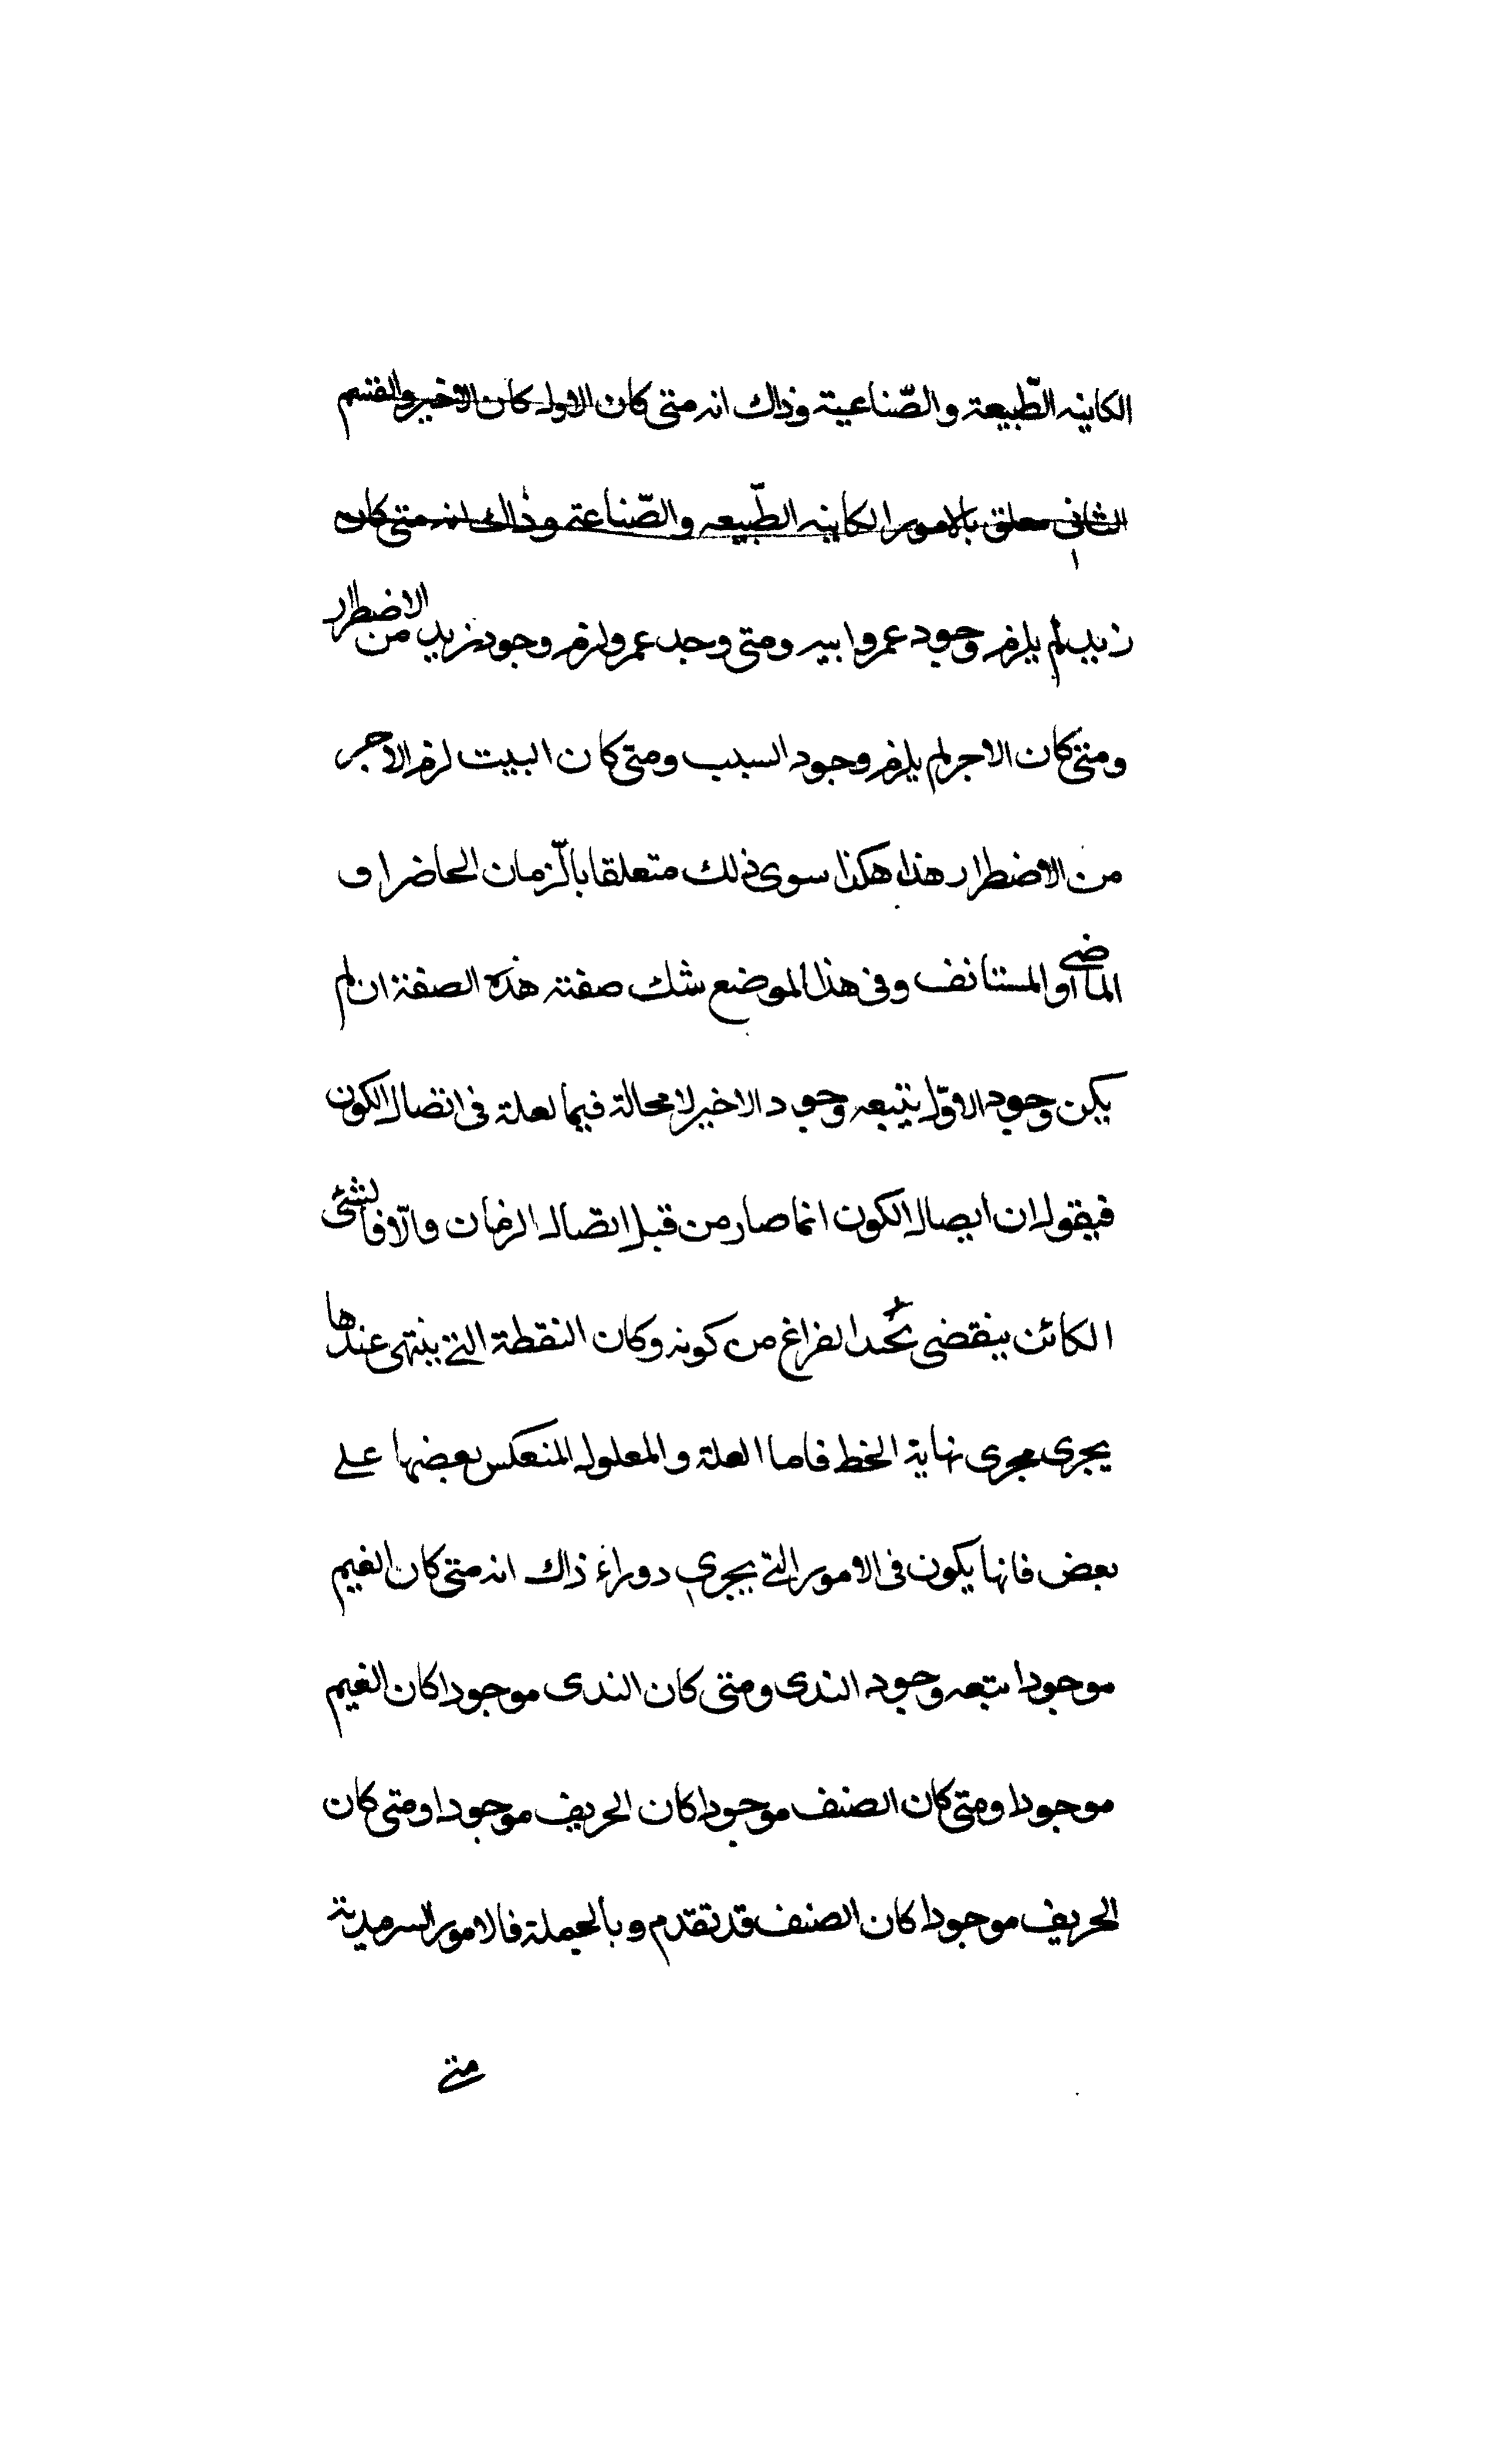 الكاينه الطّبيعة والصّناعية وذاك انه متى كان الاول كان الاخير والقسم
الثانى معلق بالامور الكاينه الطّبيعه والصّناعة وذالك انه متى كان
زيد لم يلزم وجود عمرو ابيه ومتى وجد عمرو لزم وجود زيد من الاضطرار
ومتى كان الاجر لم يلزم وجود السبب ومتى كان البيت لزم الاجر
من الاضطرار هذا هكذا سوى ذلك متعلقا بالّزمان الحاضر او
الماضى او المستانف وفى هذا الموضع شك صفته هذه الصفة ان لم
يكن وجود الاوّل يتبعه وجود الاخير لا محالة فيما لعلة فى اتصال الكون
فيقول ان ايصال الكون انما صار من قبل اتصال الزمان والّا فالشئ
الكائن ينقضى عند الفراغ من كونه وكان النقطة التى ينتهى عندها
يجرى مجرى نهاية الخط فاما العلة والمعلول المنعكس بعضها على
بعض فانها يكون فى الامور التى يجرى دوراء ذاك انه متى كان الغيم
موجودا تبعه وجود الندى ومتى كان الندى موجودا كان الغيم
موجودا ومتى كان الصنف موجودا كان الحريف موجودا ومتى كان
الحريف موجودا كان الصنف قد تقدم وبالجملة فالامور السرمدية
متى